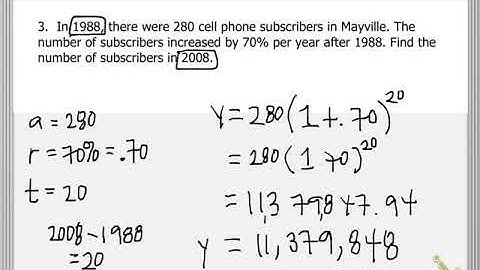 3. In 1988, there were 280 cell phone subscribers in Mayville. The
number of subscribers increased by 70% per year after 1988. Find the
number of subscribers in 2008.
a = 280
r = 70% = .70
t = 20
2008 - 1988
= 20
y = 280(1 + .70)^20
= 280(1 70)^20
= 11,379,847.94
y = 11,379,848